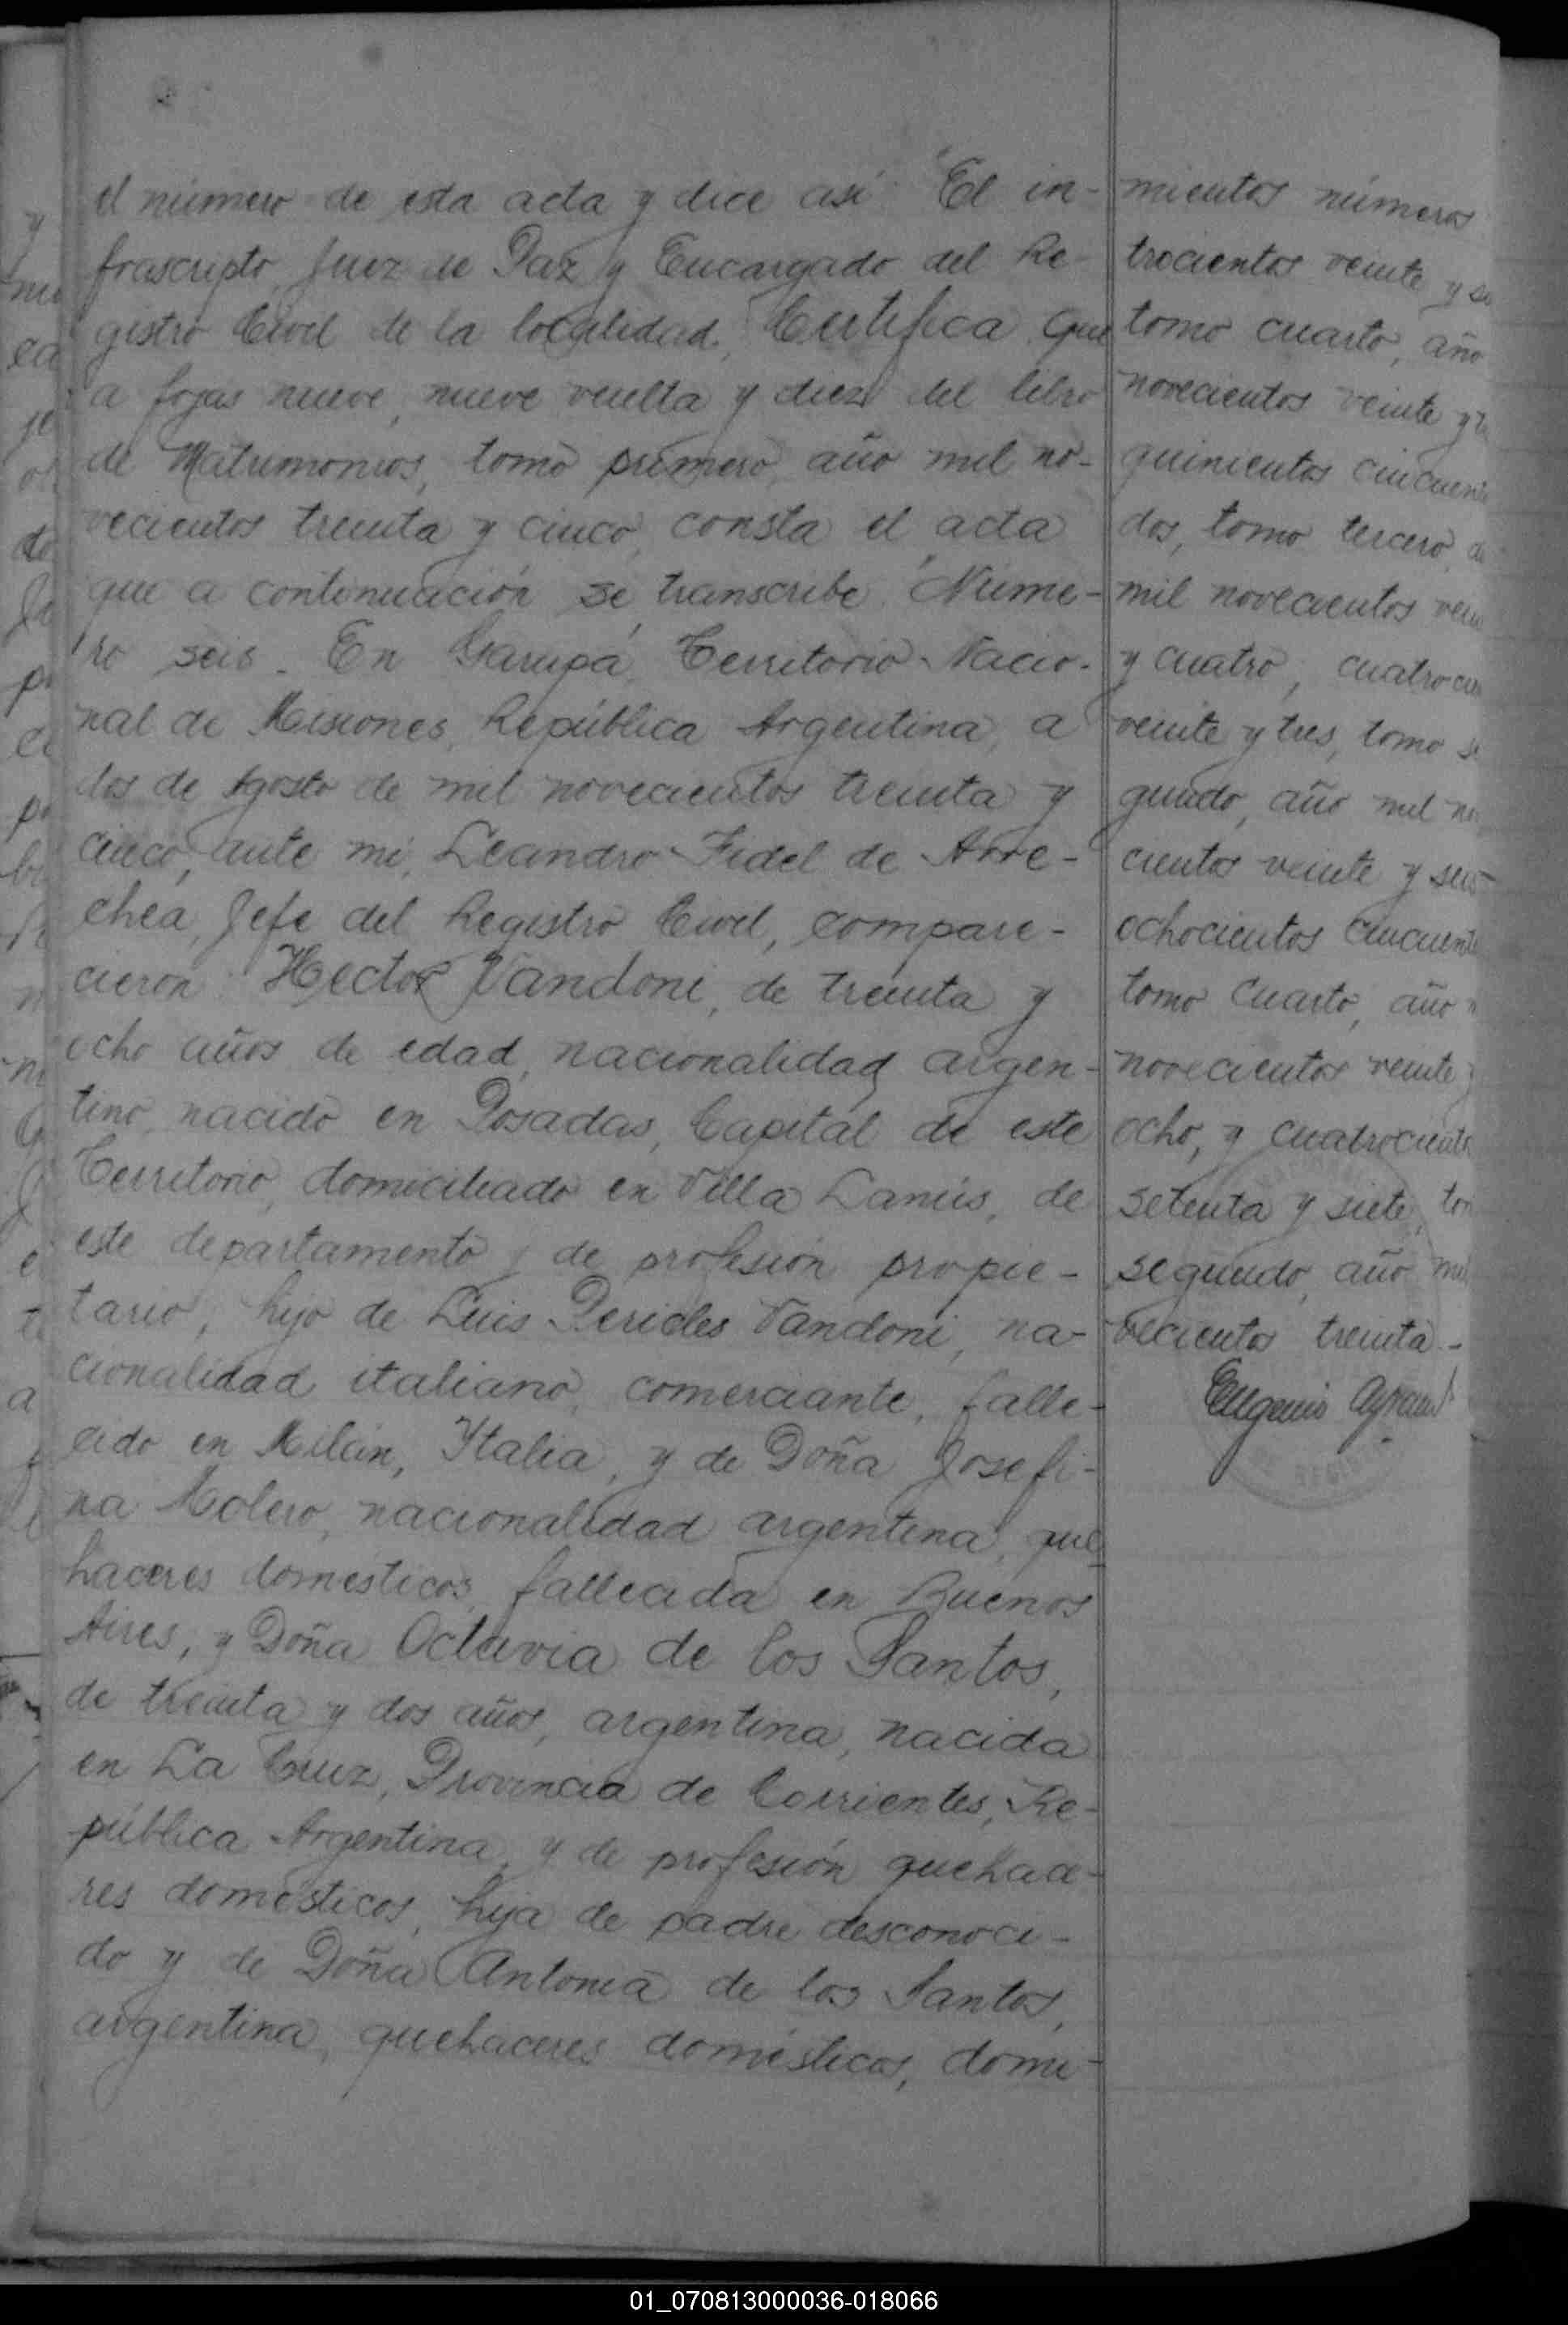 el número de esta acta y dice así: "El in-
frascripto, Juez de Paz y Encargado del Re-
gistro Civil de la localidad, Certifica: Que
a fojas nueve, nueve vuelta y diez del libro
de Matrimonios, tomo primero, año mil no-
vecientos treinta y cinco, consta el acta
que a continuación se transcribe: "Núme-
ro seis. En Garupá, Territorio Nacio-
nal de Misiones, República Argentina, a
dos de Agosto de mil novecientos treinta y
cinco, ante mi, Leandro Fidel de Arre-
chea, Jefe del Registro Civil, compare-
cieron: Hector Vandoni, de treinta y
ocho años de edad, nacionalidad argen-
tino, nacido en Posadas, Capital de este
Territorio, domiciliado en Villa Lanús, de
este departamento y de profesión propie-
tario, hijo de Luis Pericles Vandoni, na-
cionalidad italiano, comerciante, falle-
cido en Milán, Italia, y de Doña Josefi-
na Molero, nacionalidad argentina, que
haceres domésticos, fallecida en Buenos
Aires, y Doña Octavia de los Santos,
de treinta y dos años, argentina, nacida
en La Cruz, Provincia de Corrientes, Re-
pública Argentina, y de profesión quehace-
res domésticos, hija de padre desconoci-
do y de Doña Antonia de los Santos,
argentina, quehaceres domésticos, domi-
mientos números
trocientos veinte y
tomo cuarto, año
novecientos veinte y
quinientos
dos, tomo tercero,
mil novecientos
y cuatro,
veinte y tres, tomo
gundo, año mil
cientos veinte y seis
ochocientos
tomo cuarto, año
novecientos veinte
ocho, y
setenta y siete,
segundo, año
vecientos treinta.-
Eugenio
REG
01_070813000036-018066